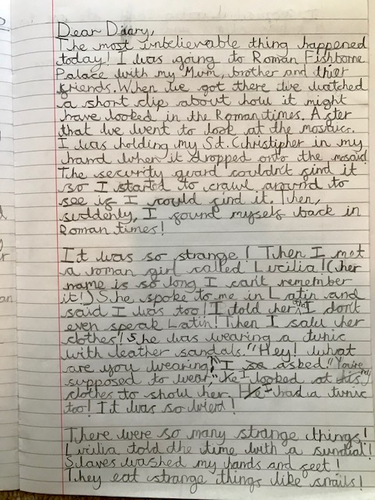 Dear Diary,
The most unbelievable thing happened
today! I was going to Roman Fishborne
Palace with my Mum, brother and thier
friends. When we got there we watched
a short clip about how it might
have looked in the Roman times. After
that we went to look at the mosaic.
I was holding my St. Christipher in my
hand when it dropped onto the mosaic.
The security guard couldn't find it
so I started to crawl around to
see if I could find it. Then,
suddenly, I found myself back in
Roman times!
It was so strange! Then I met
a roman girl called Lucilia! (her
name is so long I can't remember
it!) She spoke to me in Latin and
said I was too! I told her that I don't
even speak Latin! Then I saw her
clothes! She was wearing a tunic
with leather sandals. "Hey! what
are you wearing?" I asked "You're
supposed to wear" I looked at
clothes to show her. I had a tunic
too! It was so wierd!
There were so many strange things!
Lucilia told the time with a sundial!
Slaves washed my hands and feet!
They eat strange things like snails!